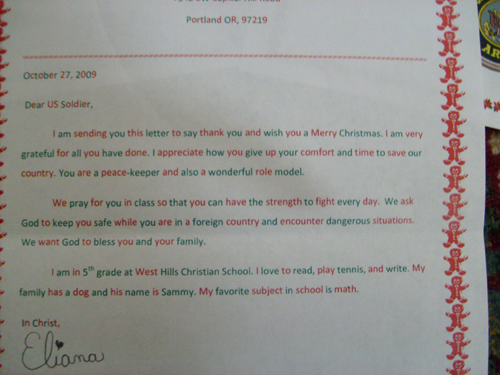 Portland OR, 97219
October 27, 2009
Dear US Soldier,
I am sending you this letter to say thank you and wish you a Merry Christmas. I am very
grateful for all you have done. I appreciate how you give up your comfort and time to save our
country. You are a peace-keeper and also a wonderful role model.
We pray for you in class so that you can have the strength to fight every day. We ask
God to keep you safe while you are in a foreign country and encounter dangerous situations.
We want God to bless you and your family.
I am in 5th grade at West Hills Christian School. I love to read, play tennis, and write. My
family has a dog and his name is Sammy. My favorite subject in school is math.
In Christ,
Eliana